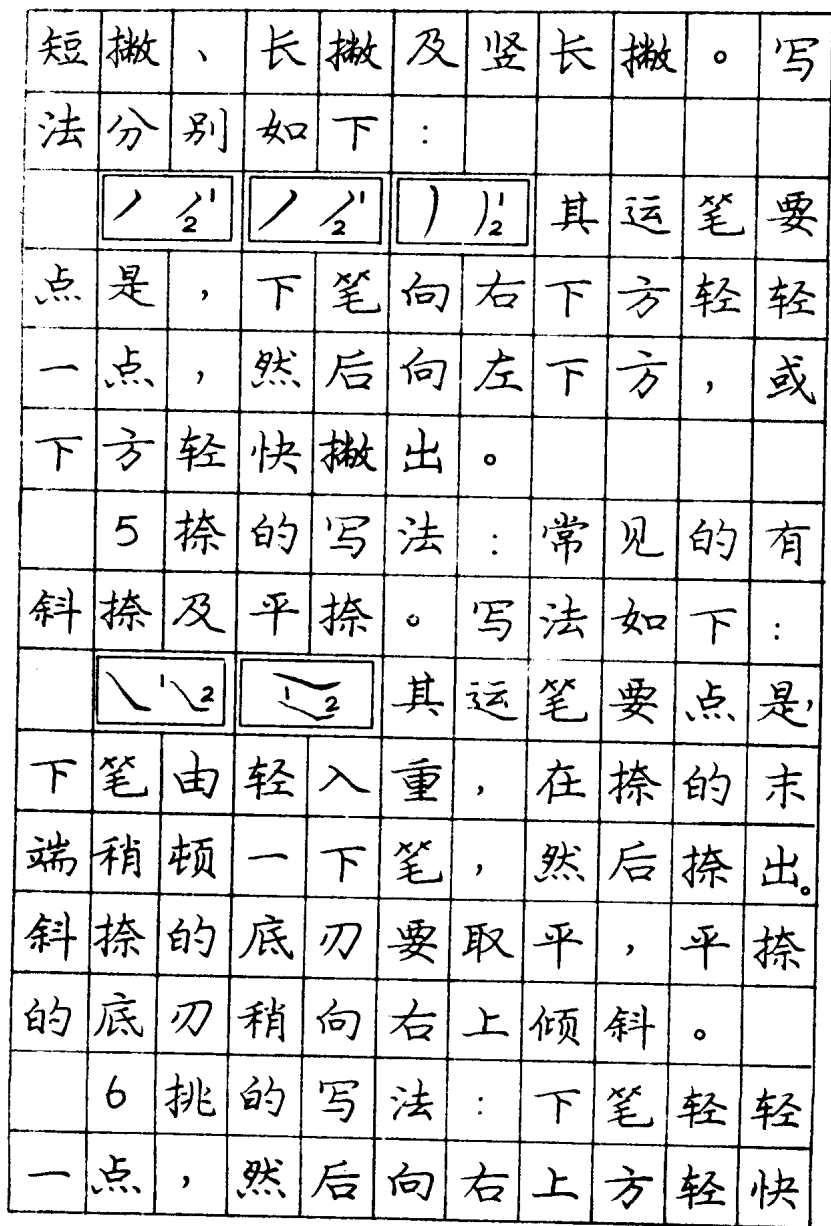 短撇、长撇及竖长撇。写
法分别如下:
1 2 1 2 1 2 其运笔要
点是,下笔向右下方轻轻
一点,然后向左下方,或
下方轻快撇出。
5捺的写法:常见的有
斜捺及平捺。写法如下:
1 2 1 2 其运笔要点是,
下笔由轻入重,在捺的末
端稍顿一下笔,然后捺出。
斜捺的底刃要取平,平捺
的底刃稍向右上倾斜。
6挑的写法:下笔轻轻
一点,然后向右上方轻快